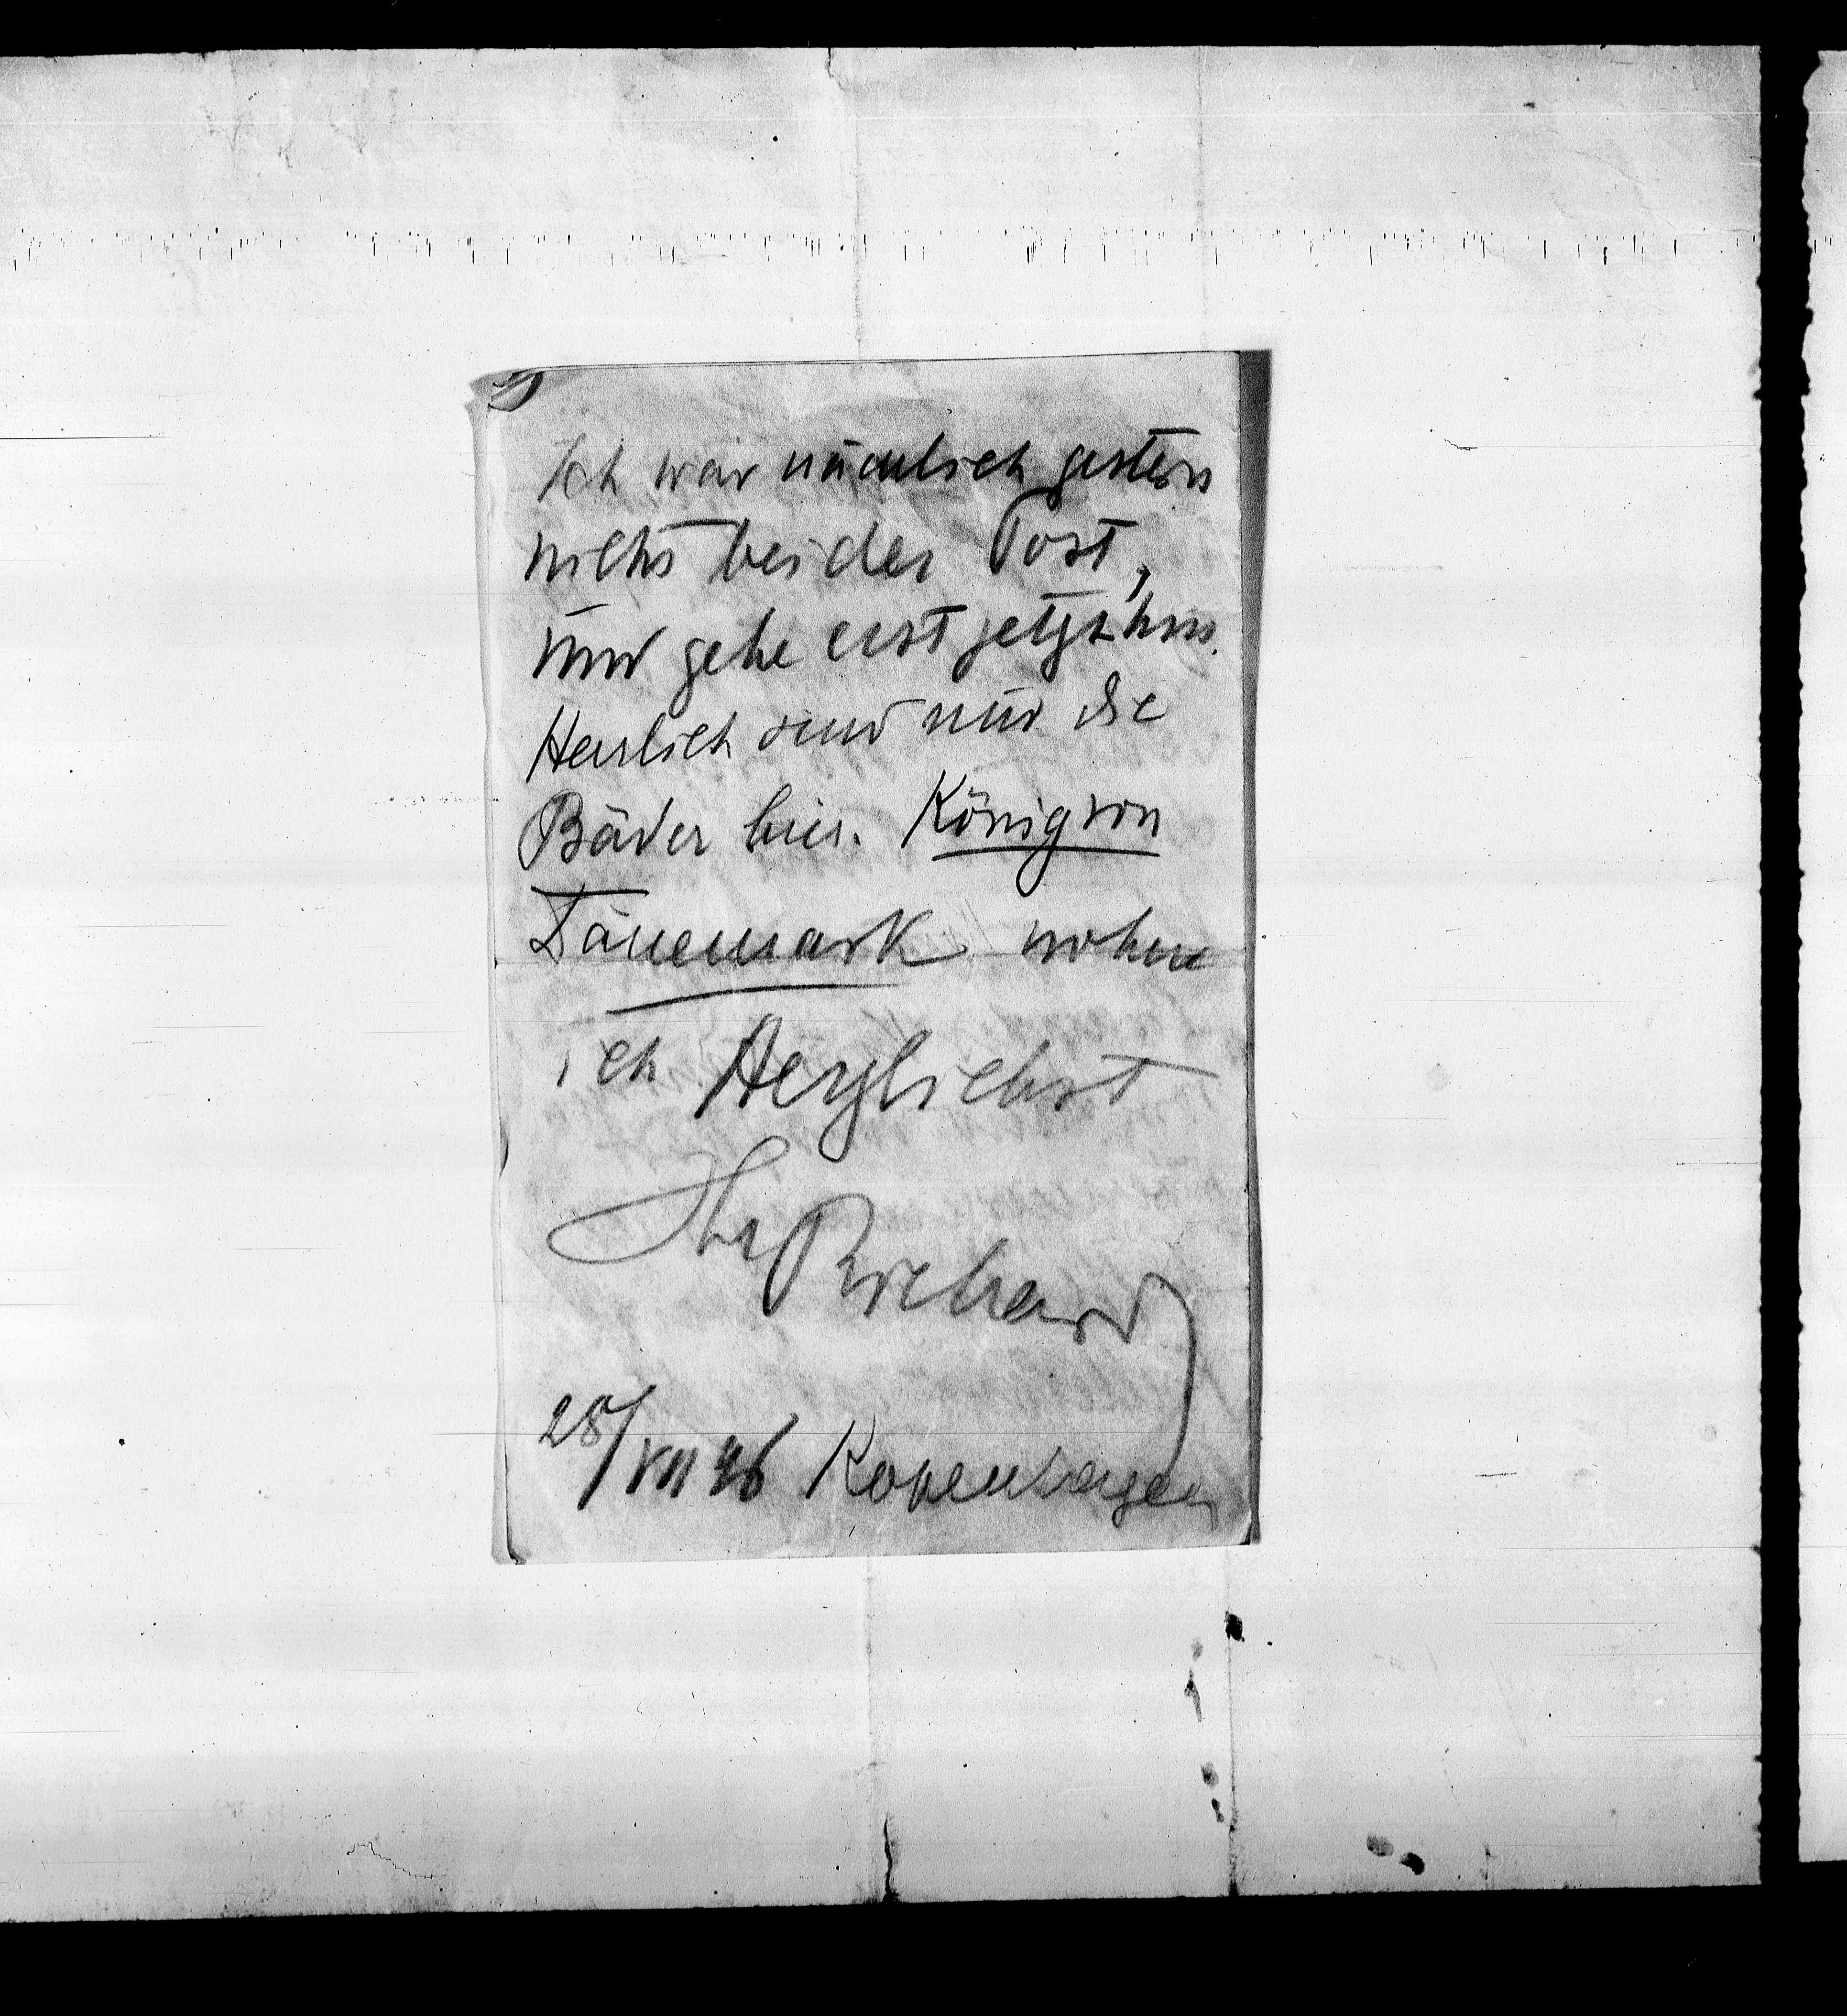 Ich war nämlich gestern
nicht bei der Post,
und gehe erst jetzt hin.
Herrlich sind nur die
Bäder hier. König von
Dänemark wohne
ich Herzlichst
Ihr Richard
28/VII 96 Kopenhagen